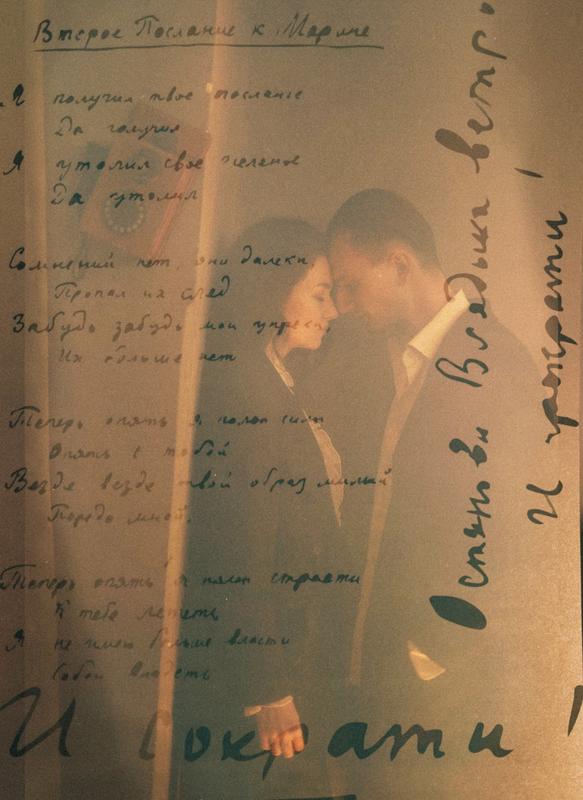 Второе Послание к Марине
Я получил твое посланье
Да получил
Я утолил свое желенье
Да утолил
Сомнений нет, они далеки,
Пропал их след
Забудь забудь мои упреки,
Их больше нет
Теперь опять я полон силы
Опять с тобой
Везде везде твой образ милый
Передо мной.
Теперь опять я полон страсти
К тебе лететь
Я не имею больше власти
Собой владеть
И сократи!
Останови Владыка ветр
И прекрати!